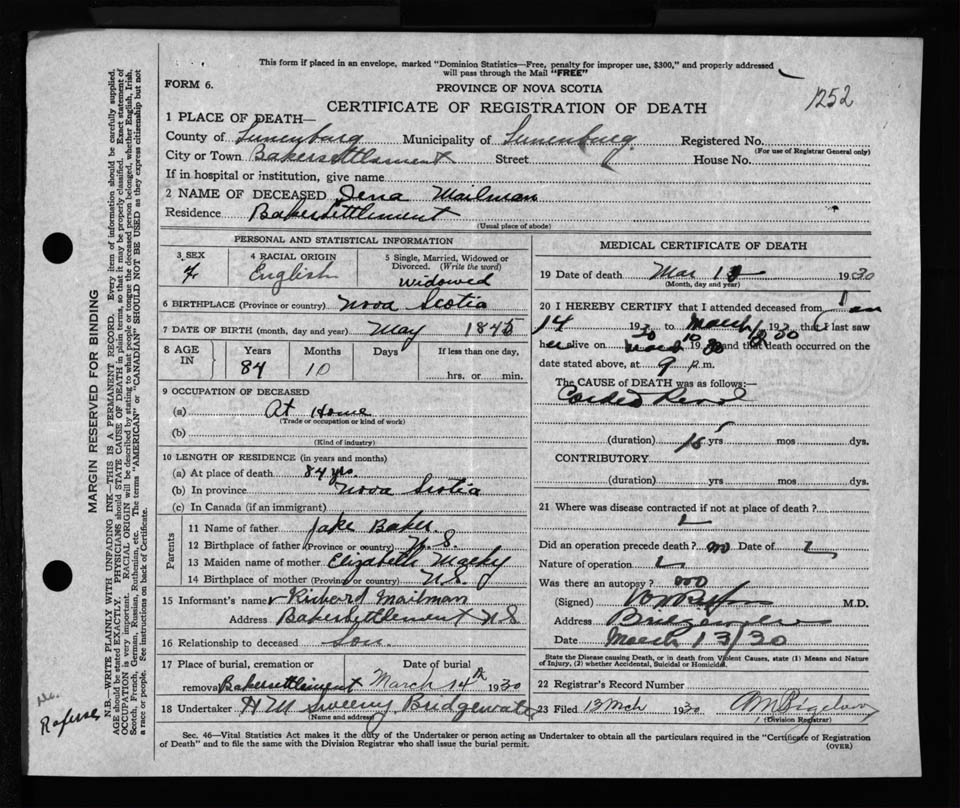 This form if placed in an envelope, marked "Dominion Statistics—Free, penalty for improper use, $300," and properly addressed
will pass through the Mail "FREE"
FORM 6.
PROVINCE OF NOVA SCOTIA
1252
CERTIFICATE OF REGISTRATION OF DEATH
1 PLACE OF DEATH—
County of Lunenburg Municipality of Lunenburg Registered No.
(For use of Registrar General only)
City or Town Bakersettlement Street House No.
If in hospital or institution, give name
2 NAME OF DECEASED Mailman
Residence Bakersettlement
(Usual place of abode)
PERSONAL AND STATISTICAL INFORMATION
3 SEX
F
4 RACIAL ORIGIN
English
5 Single, Married, Widowed or
Divorced. (Write the word)
widowed
6 BIRTHPLACE (Province or country) Nova Scotia
7 DATE OF BIRTH (month, day and year) May 1845
8 AGE IN
Years Months Days If less than one day,
84 10 hrs. or min.
9 OCCUPATION OF DECEASED
(a) At Home
(Trade or occupation or kind of work)
(b)
(Kind of industry)
10 LENGTH OF RESIDENCE (in years and months)
(a) At place of death 84 yrs.
(b) In province Nova Scotia
(c) In Canada (if an immigrant)
Parents
11 Name of father Jake Baker
12 Birthplace of father (Province or country) N.S.
13 Maiden name of mother Elizabeth
14 Birthplace of mother (Province or country) N.S.
15 Informant's name Richard Mailman
Address Bakersettlement N S
16 Relationship to deceased Son.
17 Place of burial, cremation or Date of burial
removal Bakersettlement March 14th 1930
18 Undertaker H M Sweeny Bridgewater
(Name and address)
MEDICAL CERTIFICATE OF DEATH
19 Date of death Mar 1930
(Month, day and year)
20 I HEREBY CERTIFY that I attended deceased from Jan
14 1930 to March 12 1930 that I last saw
her alive on 10 1930 and that death occurred on the
date stated above, at 9 p.m.
The CAUSE OF DEATH was as follows:—
(duration) yrs mos dys.
CONTRIBUTORY
(duration) yrs mos dys.
21 Where was disease contracted if not at place of death?
Did an operation precede death? no Date of
Nature of operation
Was there an autopsy? no
(Signed) M.D.
Address Bridgewater
Date March 13/30
State the Disease causing Death, or in death from Violent Causes, state (1) Means and Nature
of Injury, (2) whether Accidental, Suicidal or Homicidal.
22 Registrar's Record Number
23 Filed 13 Mch 1930
(Division Registrar)
Sec. 46—Vital Statistics Act makes it the duty of the Undertaker or person acting as Undertaker to obtain all the particulars required in the "Certificate of Registration
of Death" and to file the same with the Division Registrar who shall issue the burial permit.
(OVER)
MARGIN RESERVED FOR BINDING
N.B.—WRITE PLAINLY WITH UNFADING INK—THIS IS A PERMANENT RECORD. Every item of information should be carefully supplied.
AGE should be stated EXACTLY. PHYSICIANS should STATE CAUSE OF DEATH in plain terms, so that it may be properly classified. Exact statement of
OCCUPATION is very important. RACIAL ORIGIN will be described by stating to what people or tongue the deceased person belonged, whether English, Irish,
Scotch, French, German, Russian, Ruthenian, etc. The terms "AMERICAN" or "CANADIAN" SHOULD NOT BE USED as they express citizenship but not
a race or people. See instructions on back of Certificate.